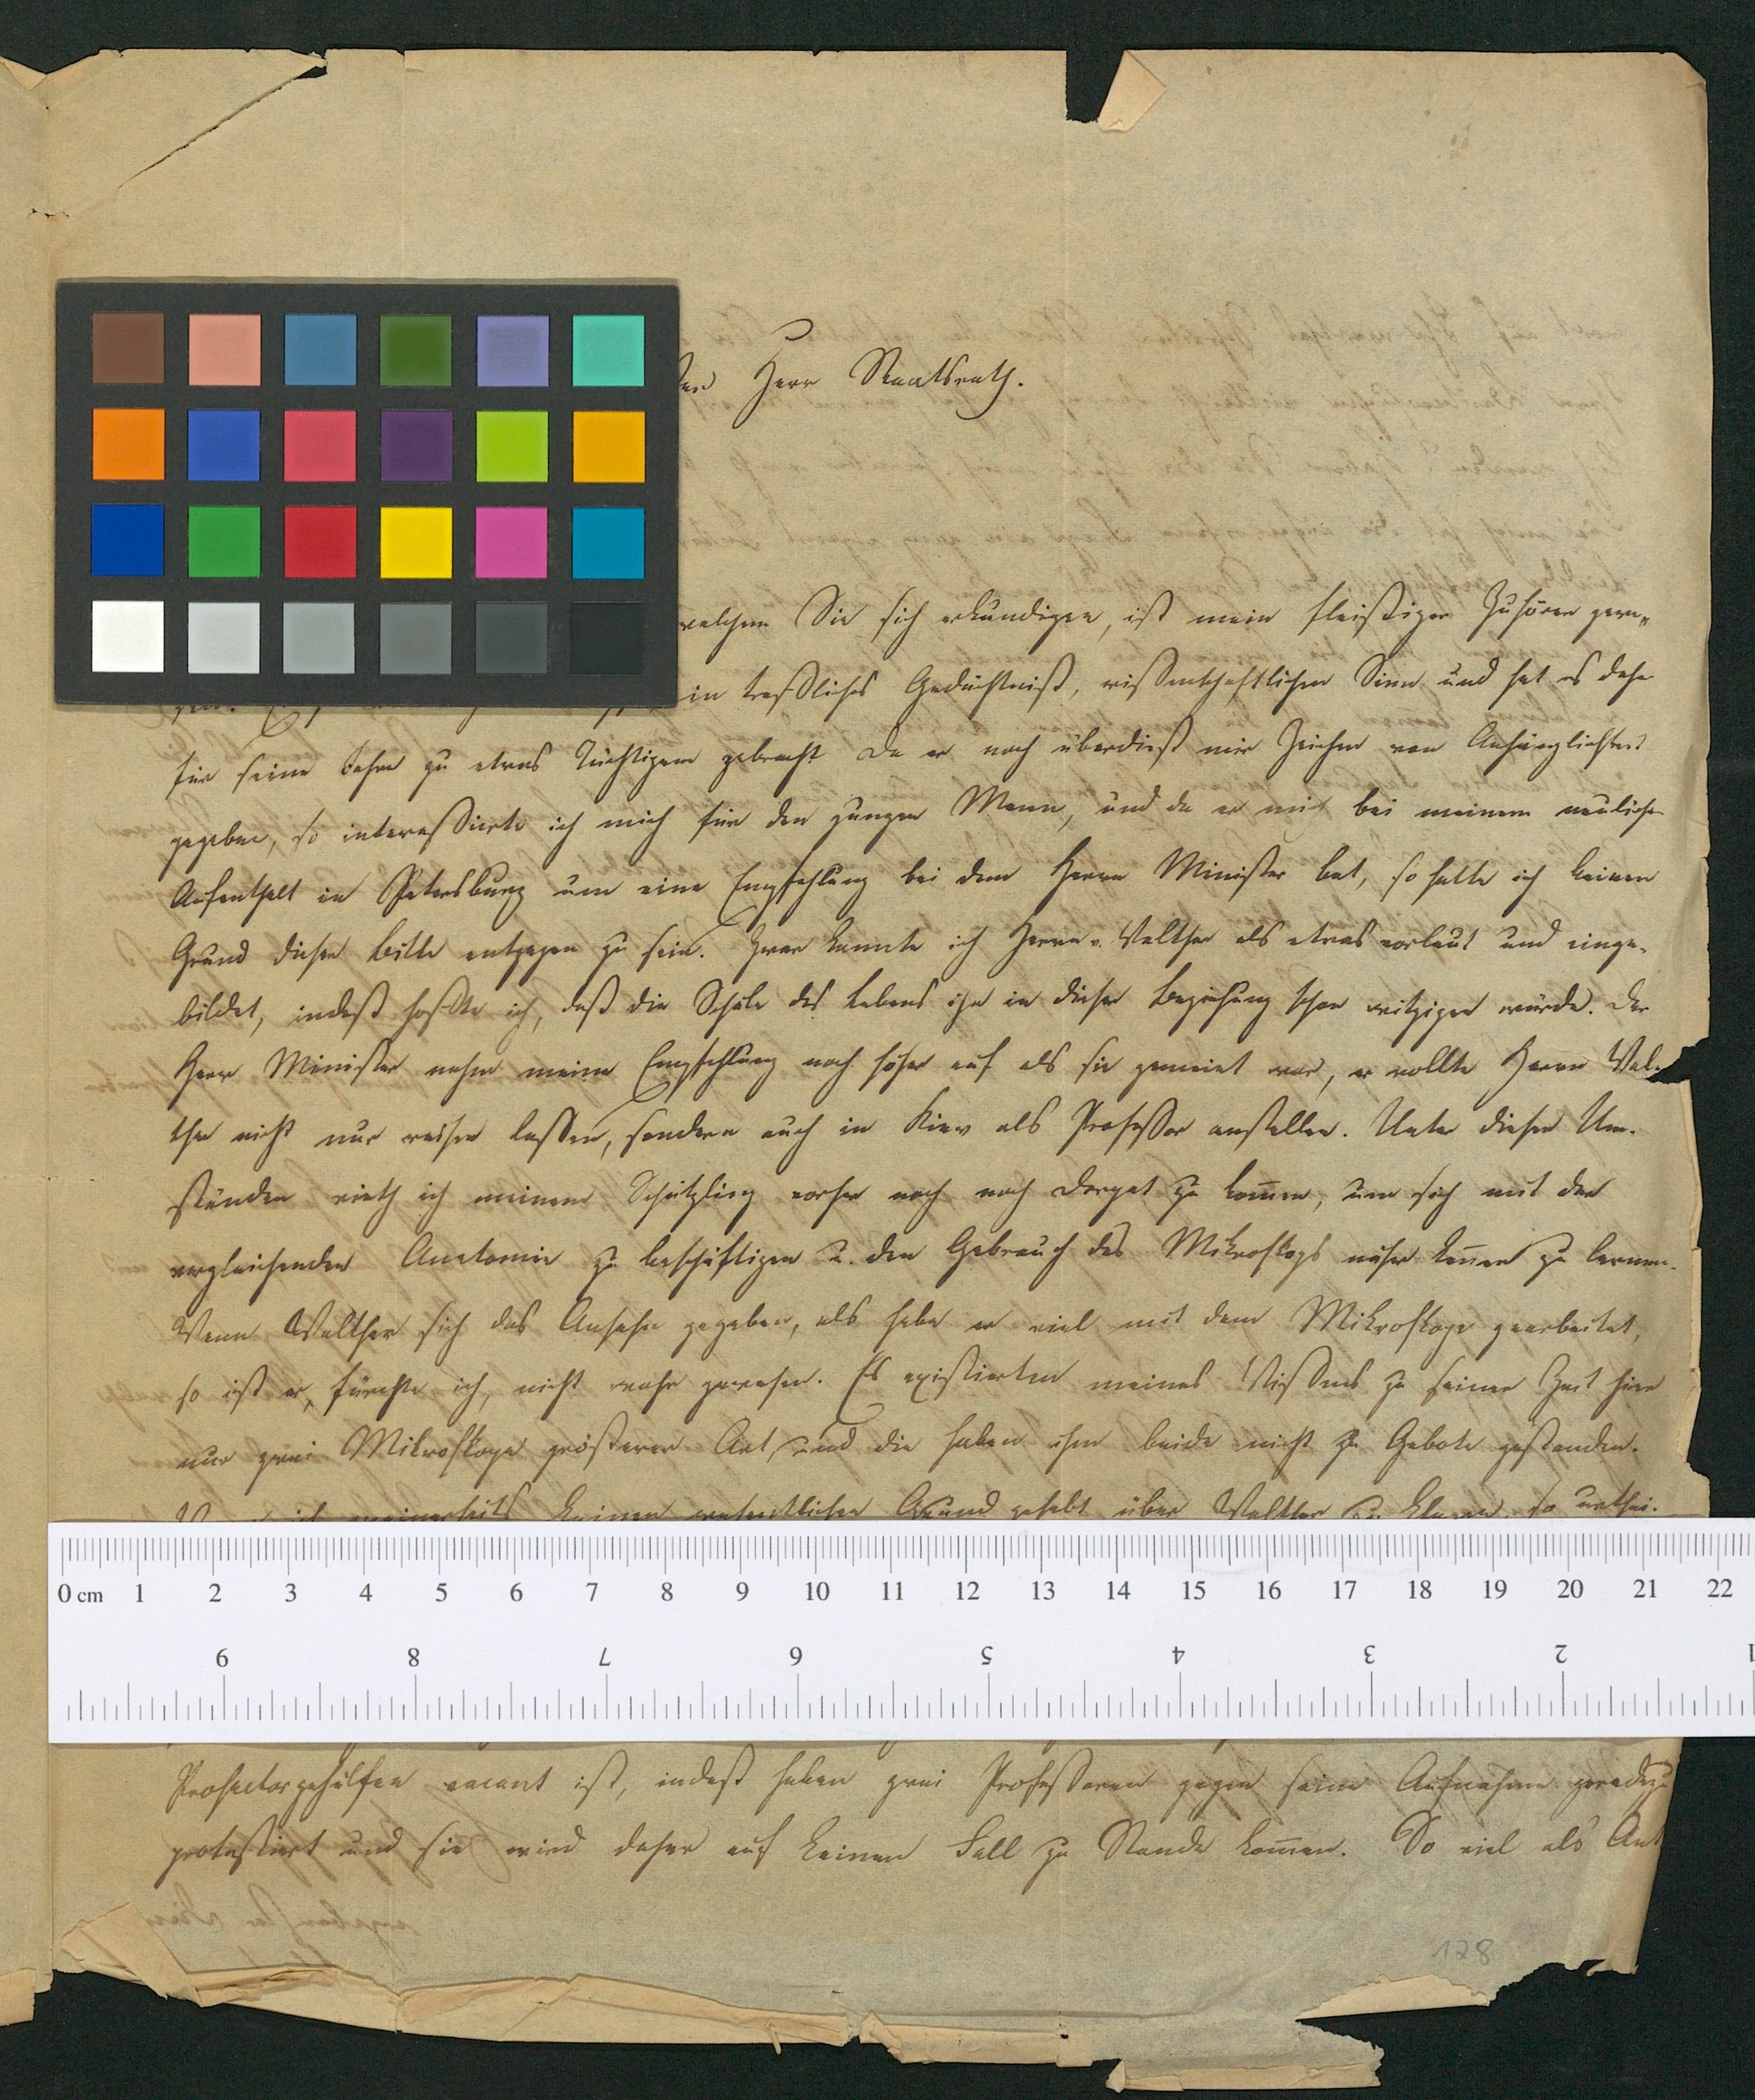 Herr Staatsrath.
welchem Sie sich erkundigen, ist mein fleißiger Zuhörer gewe-
ein treffliches Gedächtniß, wissenschaftlichen Sinn und hat es daher
für seine Jahre zu etwas Tüchtigem gebracht. Da er noch überdieß mir Zeichen von Anhänglichkeit
gegeben, so interessierte ich mich für den jungen Mann, und da er mich bei meinem neulichen
Aufenthalt in Petersburg um eine Empfehlung bei dem Herrn Minister bat, so hatte ich keinen
Grund dieser Bitte entgegen zu sein. Zwar kannte ich Herrn v. Walther als etwas vorlaut und einge-
bildet, indeß hoffte ich, daß die Schule des Lebens ihn in dieser Beziehung schon witzigen würde. Der
Herr Minister nahm meine Empfehlung noch höher auf als sie gemeint war, er wollte Herrn Wal-
ther nicht nur reisen lassen, sondern auch in Kiew als Professor anstellen. Unter diesen Um-
ständen rieth ich meinem Schützling vorher noch nach Dorpat zu kommen, um sich mit der
vergleichenden Anatomie zu beschäftigen u. den Gebrauch des Mikroskops näher kennen zu lernen.
Wenn Walther sich das Ansehn gegeben, als habe er viel mit dem Mikroskope gearbeitet,
so ist er, fürchte ich, nicht wahr gewesen. Es existierten meines Wissens zu seiner Zeit hier
nur zwei Mikroskope größerer Art und die haben ihm beide nicht zu Gebote gestanden.
ich meinerseits keinen wesentlichen Grund gehabt über Walther zu klagen, so urthei-
0 cm 1 2 3 4 5 6 7 8 9 10 11 12 13 14 15 16 17 18 19 20 21 22
9 8 7 6 5 4 3 2 1
Prosectorgehülfen vacant ist, indeß haben zwei Professoren gegen seine Aufnahme geradezu
protestiert und sie wird daher auf keinen Fall zu Stande kommen. So viel als Ant
128